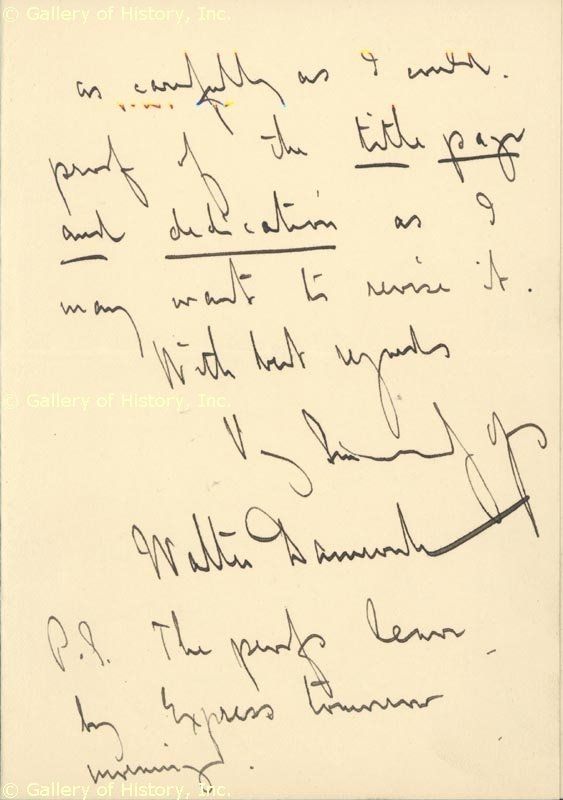 © Gallery of History, Inc.
as carefully as I could.
proof of the title page
and dedication as I
may want to revise it.
With best regards
© Gallery of History, Inc.
Very Sincerely yrs
Walter Damrosch
P.S. The proofs leave
by Express tomorrow
morning.
© Gallery of History, Inc.